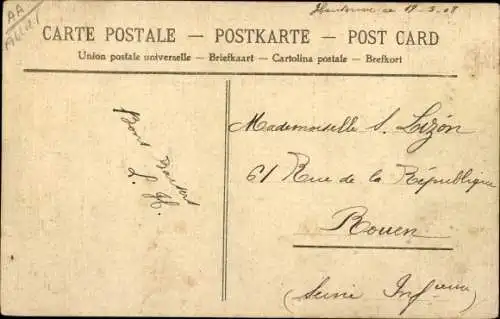 AA
CARTE POSTALE — POSTKARTE — POST CARD
Union postale universelle — Briefkaart — Cartolina postale — Brefkort
Mademoiselle S. Lizón
61 Rue de la République
Rouen
(Seine Inférieure)
Bons
L. H.